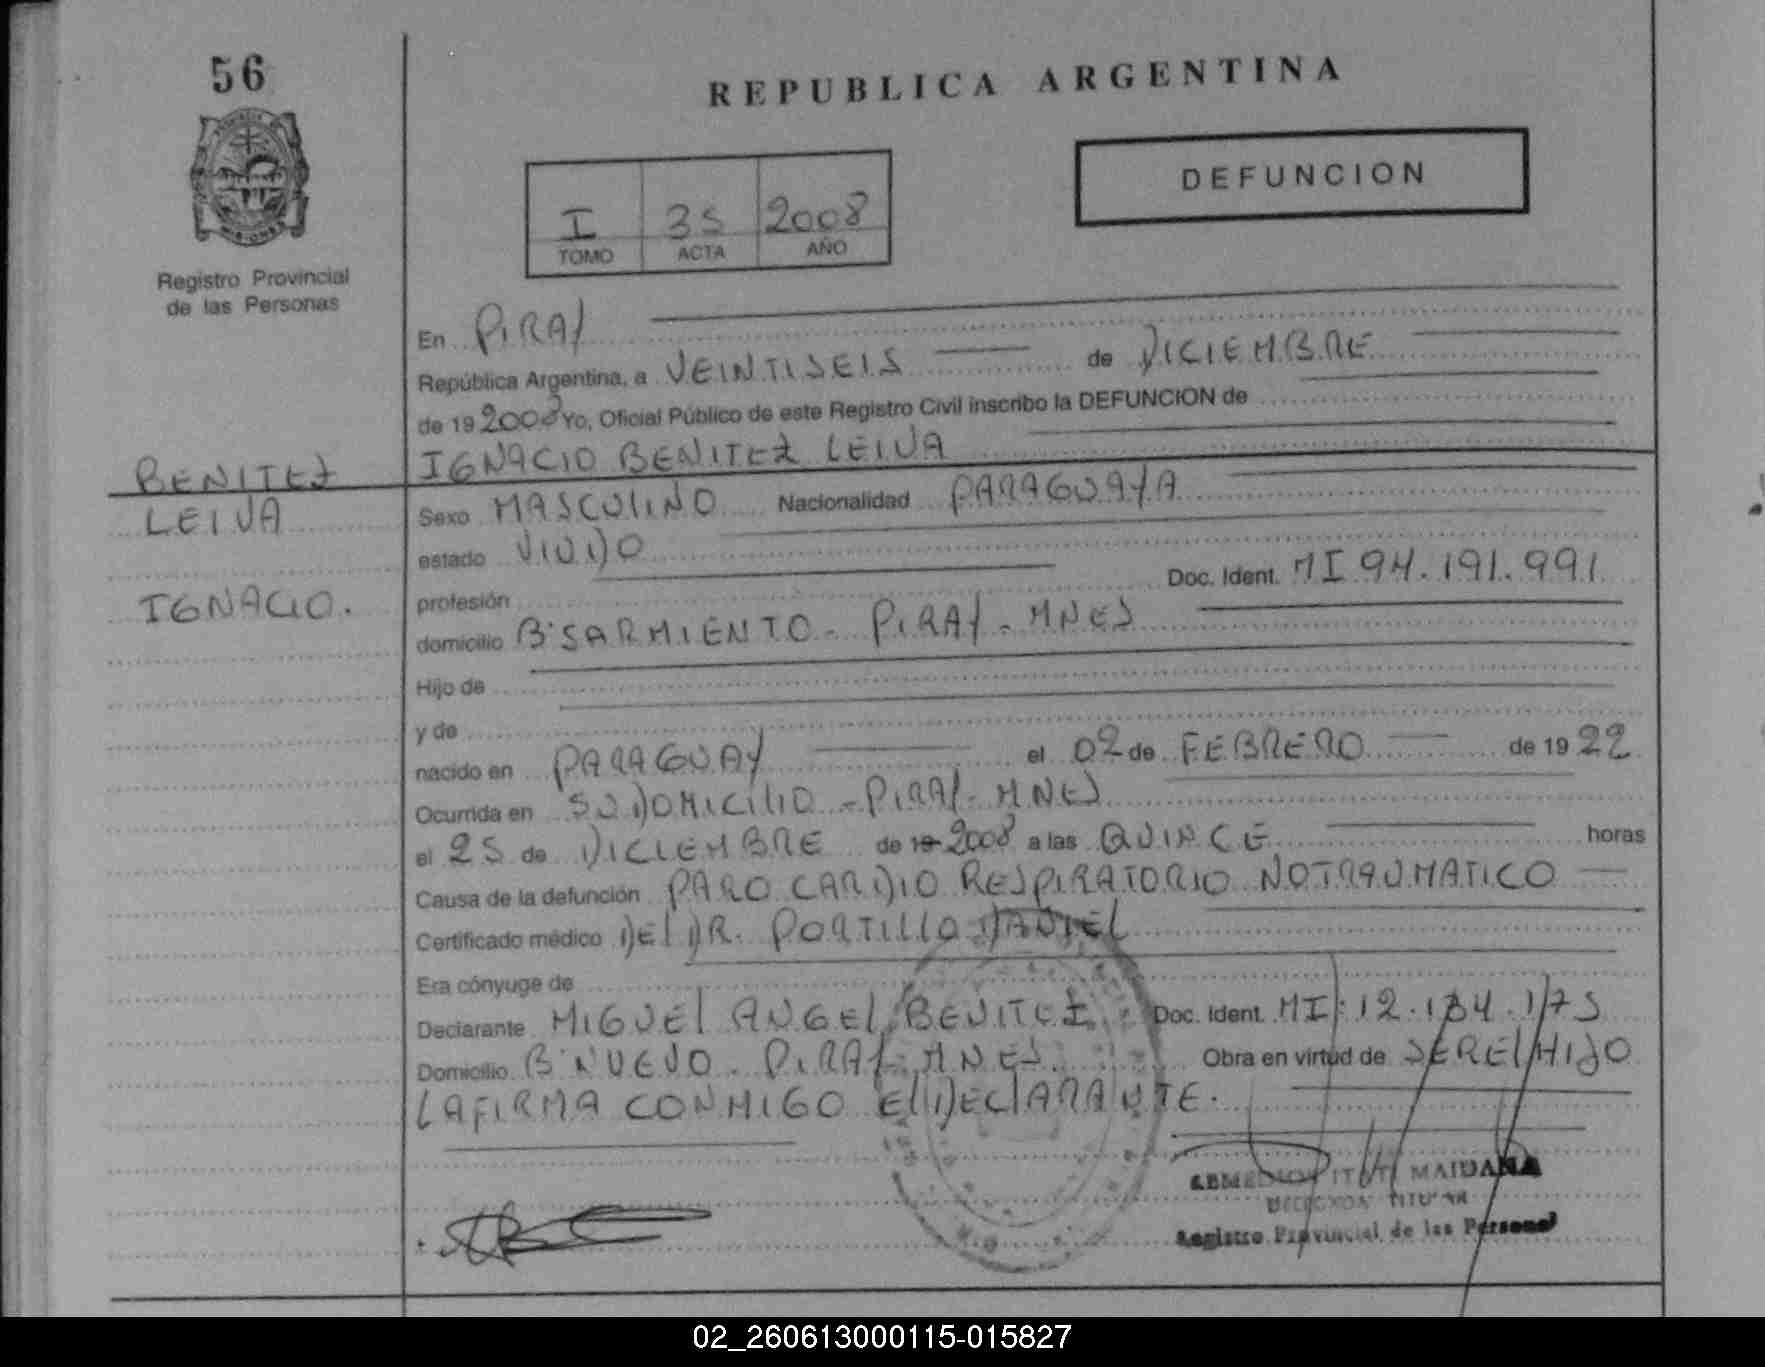 56
REPUBLICA ARGENTINA
DEFUNCION
I 35 2008
TOMO ACTA AÑO
Registro Provincial
de las Personas
En PIRAY
República Argentina, a VEINTISEIS de DICIEMBRE
de 19 2008 Yo, Oficial Público de este Registro Civil inscribo la DEFUNCION de
IGNACIO BENITEZ LEIVA
BENITEZ
LEIVA
IGNACIO.
Sexo MASCULINO Nacionalidad PARAGUAYA
estado VIUDO
Doc. Ident. MI 94.191.991
profesión
domicilio B° SARMIENTO - PIRAY - MNES
Hijo de
y de
nacido en PARAGUAY el 02 de FEBRERO de 19 22
Ocurrida en SU DOMICILIO - PIRAY - MNES
el 25 de DICIEMBRE de 19 2008 a las QUINCE horas
Causa de la defunción PARO CARDIO RESPIRATORIO NO TRAUMATICO
Certificado médico DEL DR. PORTILLO
Era cónyuge de
Declarante MIGUEL ANGEL BENITEZ Doc. Ident. MI: 12.184.175
Domicilio B° NUEVO - PIRAY - MNES Obra en virtud de SER EL HIJO
LA FIRMA CONMIGO EL DECLARANTE.
MAIDANA
Registro Provincial de las Personas
02_260613000115-015827